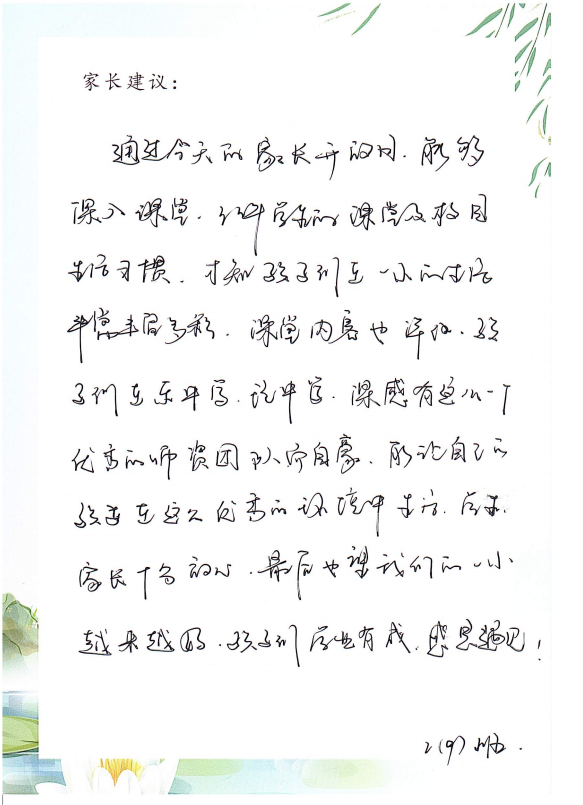 家长建议：
通过今天的家长开放日，能够
深入课堂，了解学生的课堂及校园
生活习惯，才知孩子们在一小的生活
非常丰富多彩，课堂内容也详细，孩
子们在乐中学，玩中学，深感有这么一个
优秀的师资团队而自豪，能让自己的
孩子在这么优秀的环境中生活、学习，
家长十分放心，最后也望我们的一小
越来越好，孩子们学业有成，感恩遇见！
2(9)班